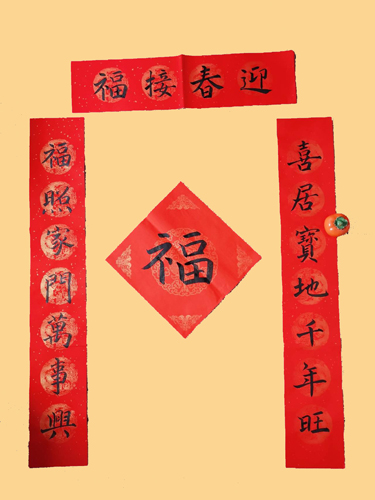 迎春接福
喜居寶地千年旺
福照家門萬事興
福